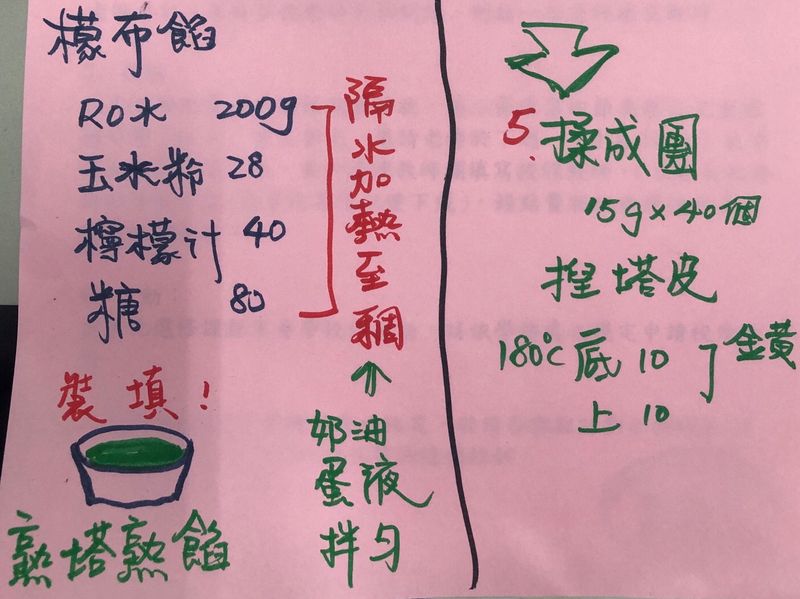 檬布餡
RO水 200g
玉米粉 28
檸檬汁 40
糖 80
隔水加熱至稠
奶油
蛋液
拌勻
裝填！
熟塔熟餡
5. 揉成團
15g×40個
捏塔皮
180℃ 底 10
上 10
金黃